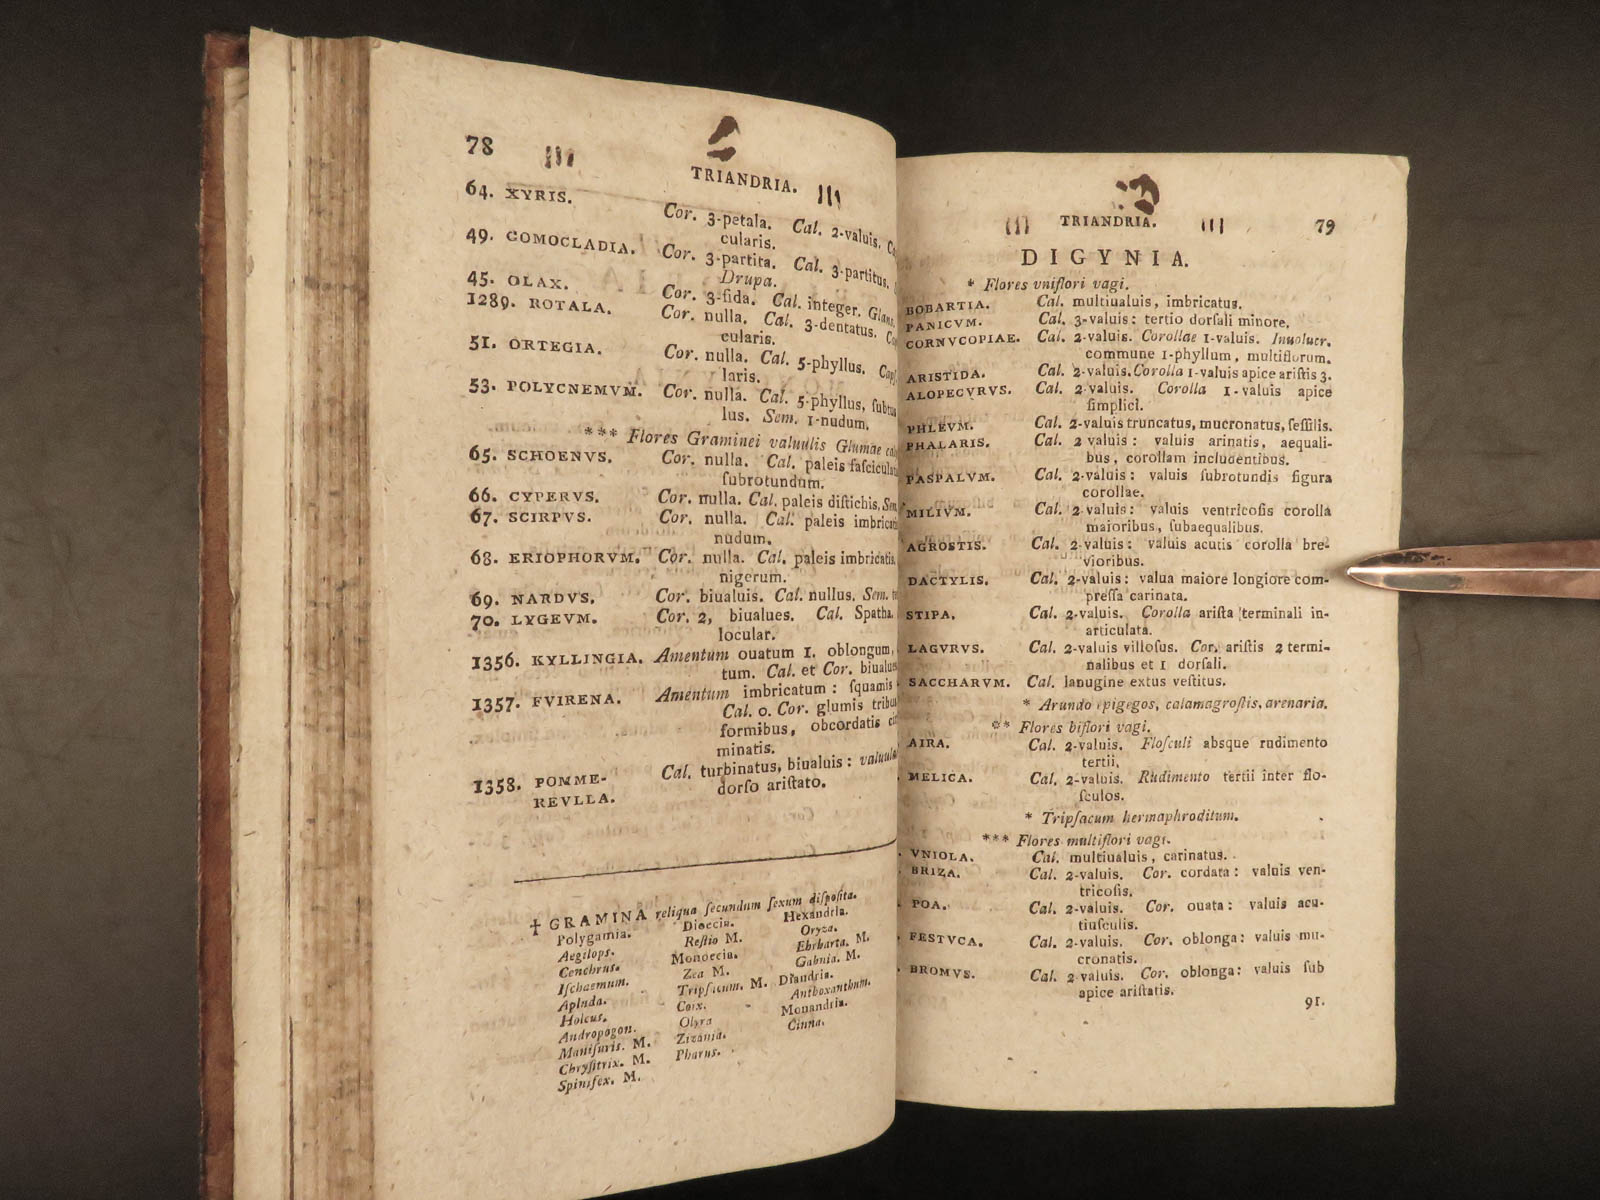 78
TRIANDRIA.
64. XYRIS. Cor. 3-petala. Cal. 2-valuis.
cularis.
49. COMOCLADIA. Cor. 3-partita. Cal. 3-partitus.
Drupa.
45. OLAX. Cor. 3-fida. Cal. integer.
1289. ROTALA. Cor. nulla. Cal. 3-dentatus.
cularis.
51. ORTEGIA. Cor. nulla. Cal. 5-phyllus.
laris.
53. POLYCNEMVM. Cor. nulla. Cal. 5-phyllus, ſubtus
lus. Sem. 1-nudum.
*** Flores Graminei valuulis Glumae
65. SCHOENVS. Cor. nulla. Cal. paleis
ſubrotundum.
66. CYPERVS. Cor. nulla. Cal. paleis diſtichis, Sem.
67. SCIRPVS. Cor. nulla. Cal. paleis
nudum.
68. ERIOPHORVM. Cor. nulla. Cal. paleis imbricatis.
nigerum.
69. NARDVS. Cor. biualuis. Cal. nullus. Sem.
70. LYGEVM. Cor. 2, biualues. Cal. Spatha.
locular.
1356. KYLLINGIA. Amentum ouatum 1. oblongum,
tum. Cal. et Cor. biualues
1357. FVIRENA. Amentum imbricatum: ſquamis
Cal. 0. Cor. glumis tribus
formibus, obcordatis
minatis.
1358. POMME- Cal. turbinatus, biualuis: valuula
REVLLA. dorſo ariſtato.
† GRAMINA reliqua ſecundum ſexum diſpoſita.
Polygamia. Dioecia. Hexandria.
Aegilops. Reſtio M. Oryza.
Cenchrus. Monoecia. Ehrharta. M.
Iſchaemum. Zea M. Gahnia. M.
Apluda. Tripſacum. M. Diandria.
Holcus. Coix. Anthoxanthum.
Andropogon. Olyra Monandria.
Maniſuris. M. Zizania. Cinna.
Chryſitrix. M. Pharus.
Spinifex. M.
TRIANDRIA. 79
DIGYNIA.
* Flores vniflori vagi.
BOBARTIA. Cal. multiualuis, imbricatus.
PANICVM. Cal. 3-valuis: tertio dorſali minore.
CORNVCOPIAE. Cal. 2-valuis. Corollae 1-valuis. Inuolucr.
commune 1-phyllum, multiflorum.
ARISTIDA. Cal. 2-valuis. Corolla 1-valuis apice ariſtis 3.
ALOPECVRVS. Cal. 2-valuis. Corolla 1-valuis apice
ſimplici.
PHLEVM. Cal. 2-valuis truncatus, mucronatus, ſeſſilis.
PHALARIS. Cal. 2 valuis: valuis arinatis, aequali-
bus, corollam includentibus.
PASPALVM. Cal. 2-valuis: valuis ſubrotundis figura
corollae.
MILIVM. Cal. 2 valuis: valuis ventricoſis corolla
maioribus, ſubaequalibus.
AGROSTIS. Cal. 2-valuis: valuis acutis corolla bre-
vioribus.
DACTYLIS. Cal. 2-valuis: valua maiore longiore com-
preſſa carinata.
STIPA. Cal. 2-valuis. Corolla ariſta terminali in-
articulata.
LAGVRVS. Cal. 2-valuis villoſus. Cor. ariſtis 2 termi-
nalibus et 1 dorſali.
SACCHARVM. Cal. lanugine extus veſtitus.
* Arundo epigegos, calamagroſtis, arenaria.
** Flores biflori vagi.
AIRA. Cal. 2-valuis. Floſculi absque rudimento
tertii.
MELICA. Cal. 2-valuis. Rudimento tertii inter flo-
ſculos.
* Tripſacum hermaphroditum.
*** Flores multiflori vagi.
VNIOLA. Cal. multiualuis, carinatus.
BRIZA. Cal. 2-valuis. Cor. cordata: valuis ven-
tricoſis.
POA. Cal. 2-valuis. Cor. ouata: valuis acu-
tiuſculis.
FESTVCA. Cal. 2-valuis. Cor. oblonga: valuis mu-
cronatis.
BROMVS. Cal. 2 valuis. Cor. oblonga: valuis ſub
apice ariſtatis.
91.